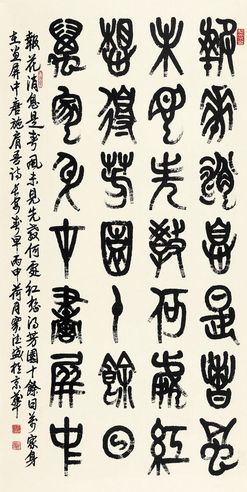 報花消息是春風
未見先教何處紅
想得芳園十餘日
萬家身在畫屏中
報花消息是春風未見先教何處紅想得芳園十餘日萬家身
在畫屏中唐施肩吾詩長安春早丙申荷月於京華